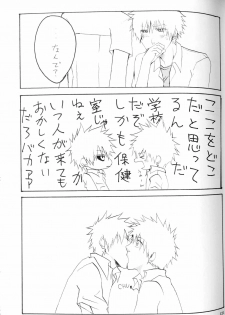 なんで?
ここをどこ
だと思って
るんだ
学校だぞ
しかも保健
室じゃねぇ
いつ人が来ても
おかしくない
だろバカアァ
Chu